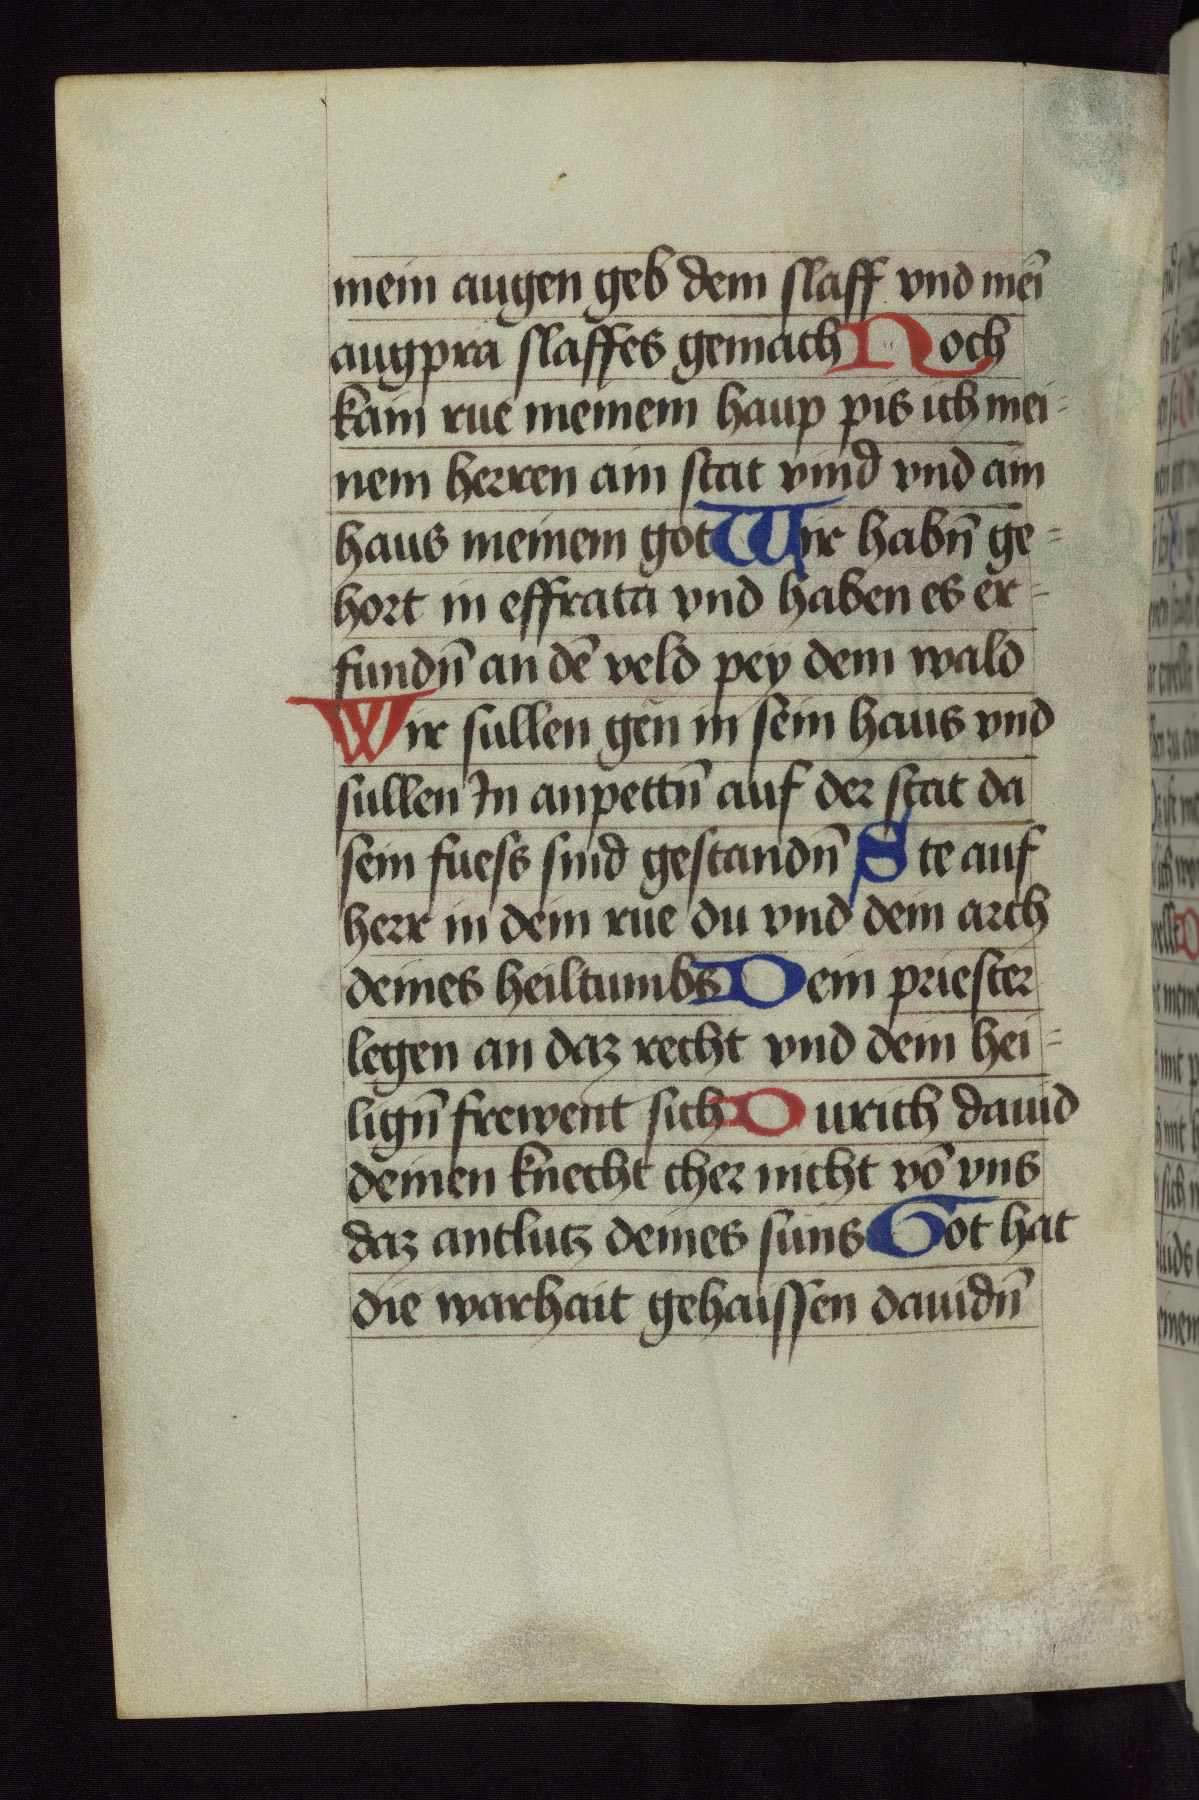 mein augen geb dem slaff vnd mei͞
augpra slaffes gemach Noch
kain rue meinem haup pis ich mei-
nem herren ain stat vind vnd ain
haus meinem got Wir habn̄ ge-
hort in effrata vnd haben es er-
fundn̄ an dē veld pey dem wald
Wir sullen gen in sein haus vnd
sullen In anpettn̄ auf der stat da
sein fuess sind gestandn̄ Ste auf
herr in dein rue du vnd dein arch
deines heiltumbs Dein priester
legen an daz recht vnd dein hei-
lign̄ frewent sich Durich dauid
deinen knecht cher nicht vō vns
daz antlutz deines suns Got hat
die warhait gehaissen dauidn̄